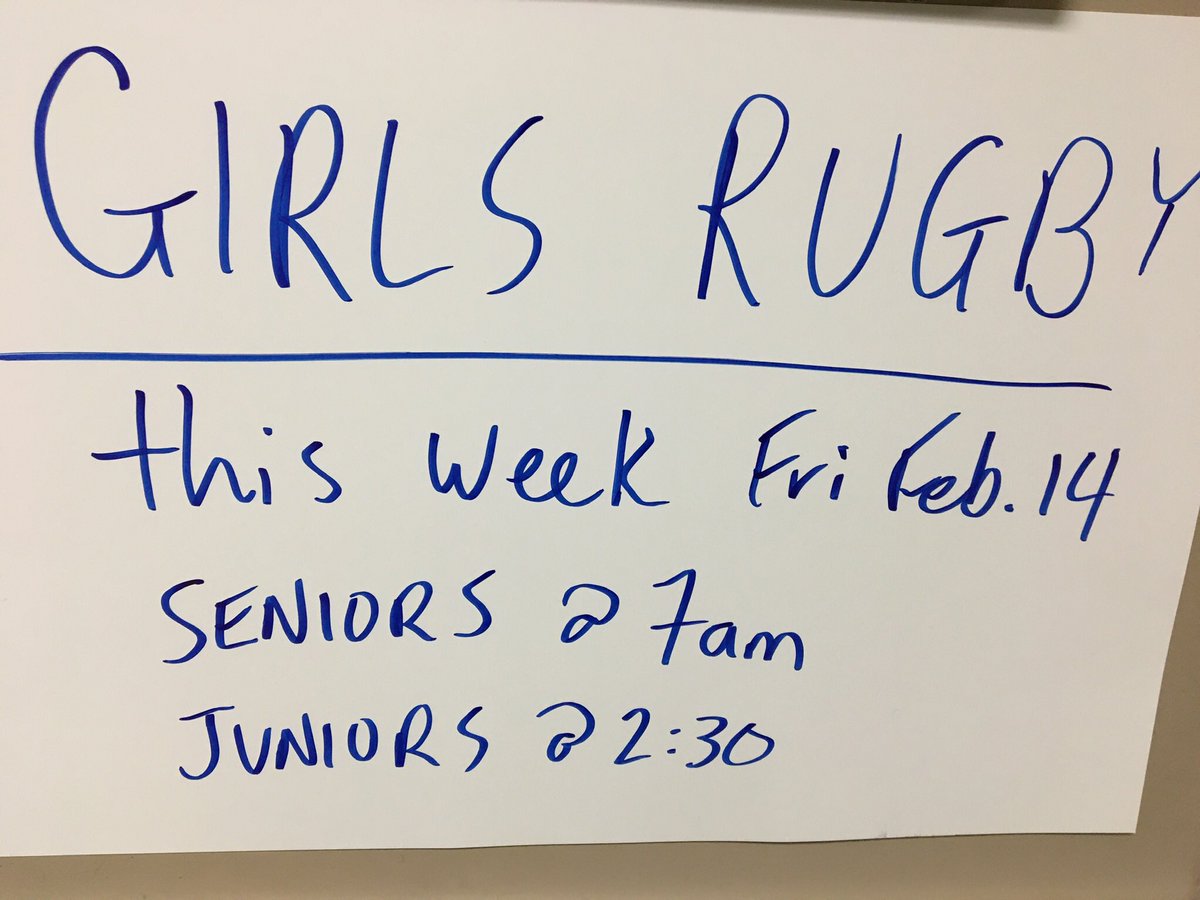 GIRLS RUGBY
this week Fri Feb. 14
SENIORS @ 7am
JUNIORS @ 2:30